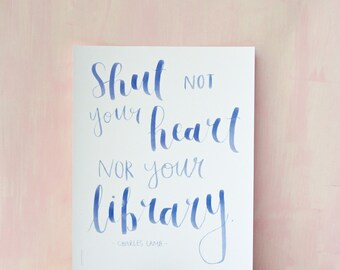 Shut NOT
your heart
NOR your
library.
- CHARLES LAMB -